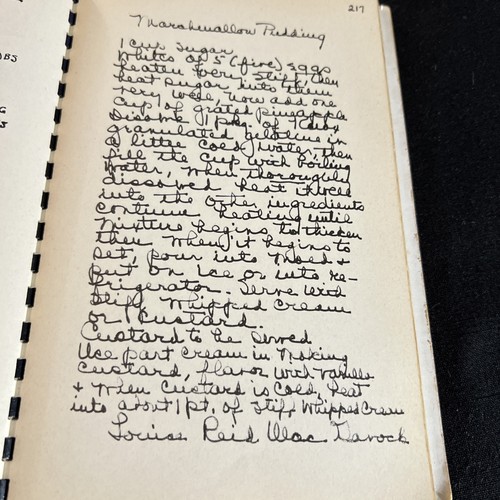 217
Marshmallow Pudding
1 cup sugar
Whites of 5 (five) eggs
beaten very stiff, then
beat sugar into them
very well, now add one
cup of grated pineapple
Disolve 1 pkg. of
granulated gelatine in
a little cold water, then
fill the cup with boiling
water, when thoroughly
dissolved beat
into the other ingredients
continue beating until
mixture begins to thicken
then when it begins to
set, pour into mold &
put on ice or into re-
frigerator. Serve with
stiff Whipped Cream
or Custard.
Custard to be served
Use part cream in making
custard, flavor with vanilla
& when custard is cold, beat
into about 1 pt. of stiff Whipped Cream
Louise Reid Mac Garock
BS
G
S